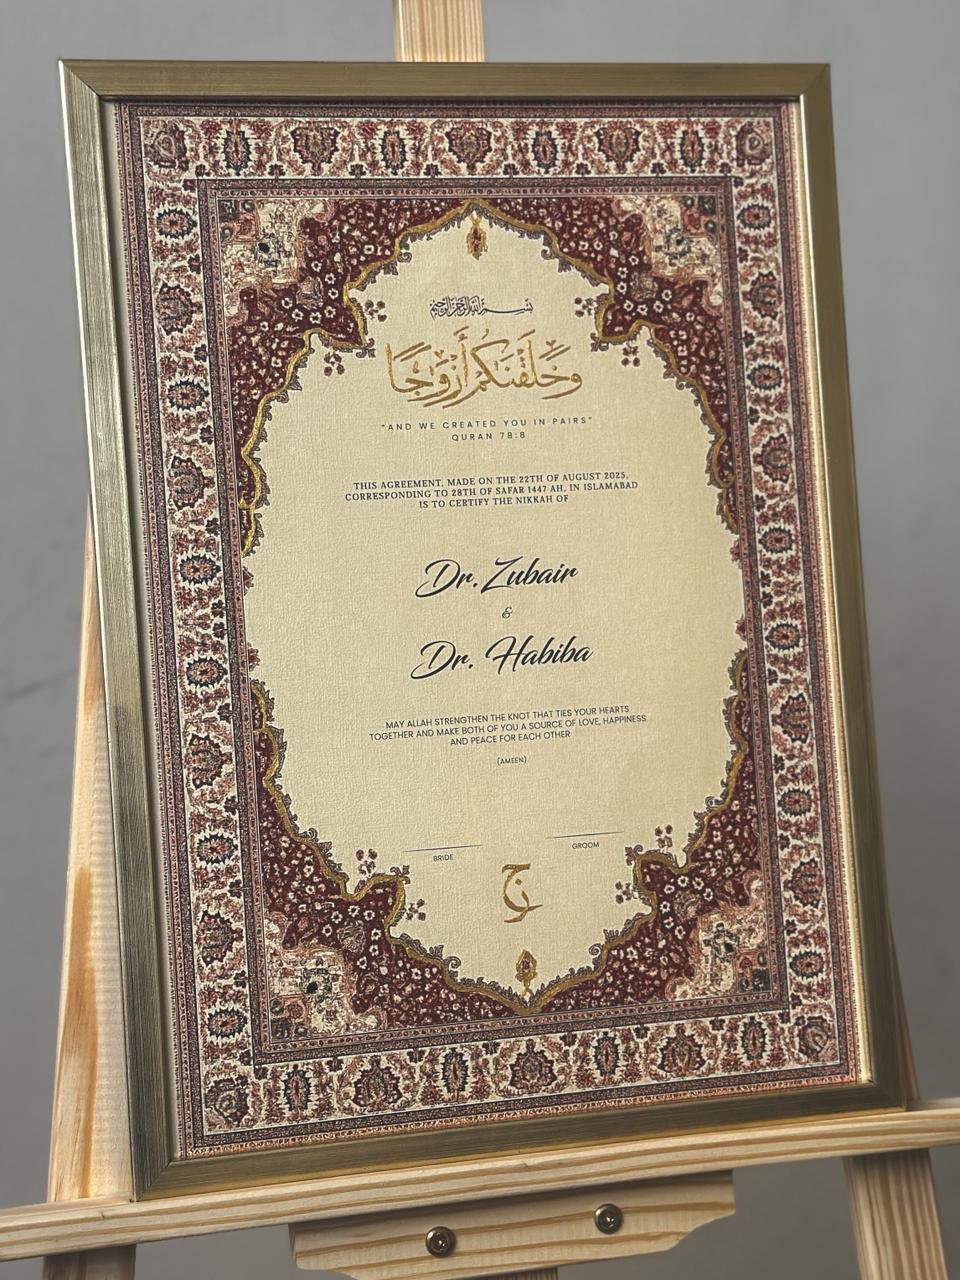 بسم الله الرحمن الرحيم
وَخَلَقْنَكُمْ أَزْوَجًا
"AND WE CREATED YOU IN PAIRS"
QURAN 78:8
THIS AGREEMENT, MADE ON THE 22TH OF AUGUST 2025,
CORRESPONDING TO 28TH OF SAFAR 1447 AH, IN ISLAMABAD
IS TO CERTIFY THE NIKKAH OF
Dr. Zubair
&
Dr. Habiba
MAY ALLAH STRENGTHEN THE KNOT THAT TIES YOUR HEARTS
TOGETHER AND MAKE BOTH OF YOU A SOURCE OF LOVE, HAPPINESS
AND PEACE FOR EACH OTHER
(AMEEN)
BRIDE
GROOM